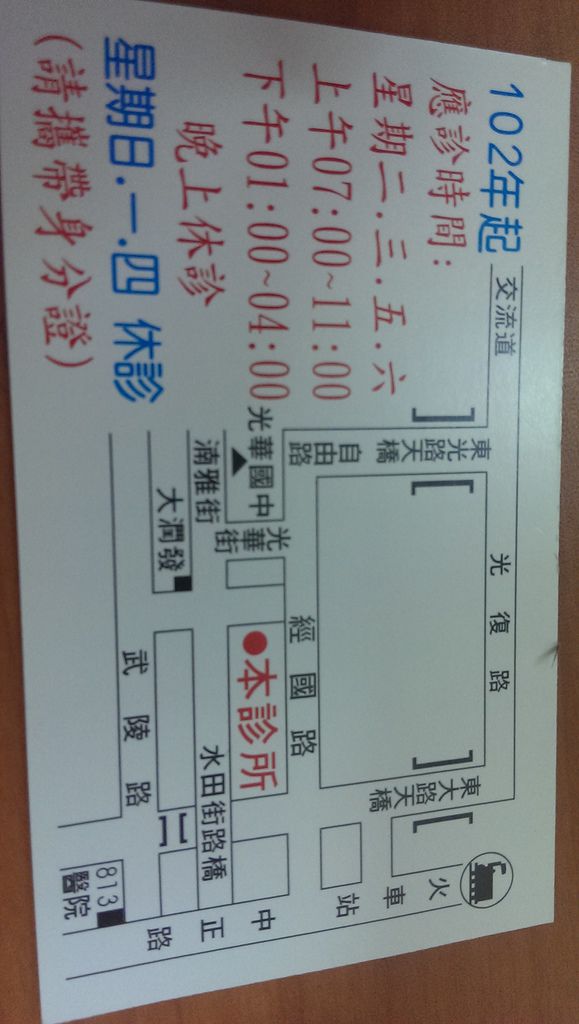 102年起
應診時間:
星期二.三.五.六
上午07:00~11:00
下午01:00~04:00
晚上休診
星期日.一.四 休診
(請攜帶身分證)
交流道
東光路
天橋
自由路
光復路
東大路
天橋
火車站
光華國中
光華街
湳雅街
大潤發
經國路
●本診所
水田街路橋
武陵路
中正路
813
醫院